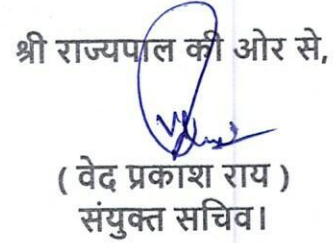 श्री राज्यपाल की ओर से,
( वेद प्रकाश राय )
संयुक्त सचिव।